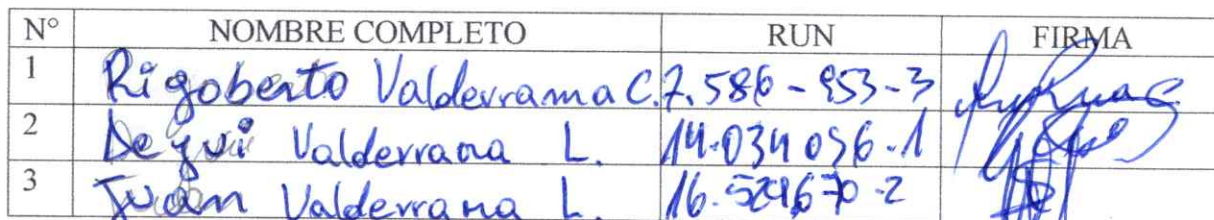 N° NOMBRE COMPLETO RUN FIRMA
1 Rigoberto Valderrama C. 7.586-953-3
2 Valderrama L. 14.034056-1
3 Juan Valderrama L.